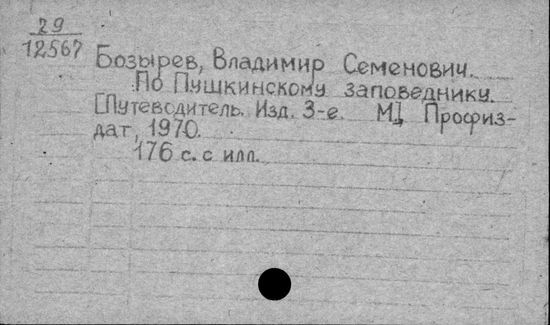 29
12567
Бозырев, Владимир Семенович.
По Пушкинскому заповеднику.
[Путеводитель. Изд. 3-е. М], Профиз-
дат, 1970.
176 с. с илл.